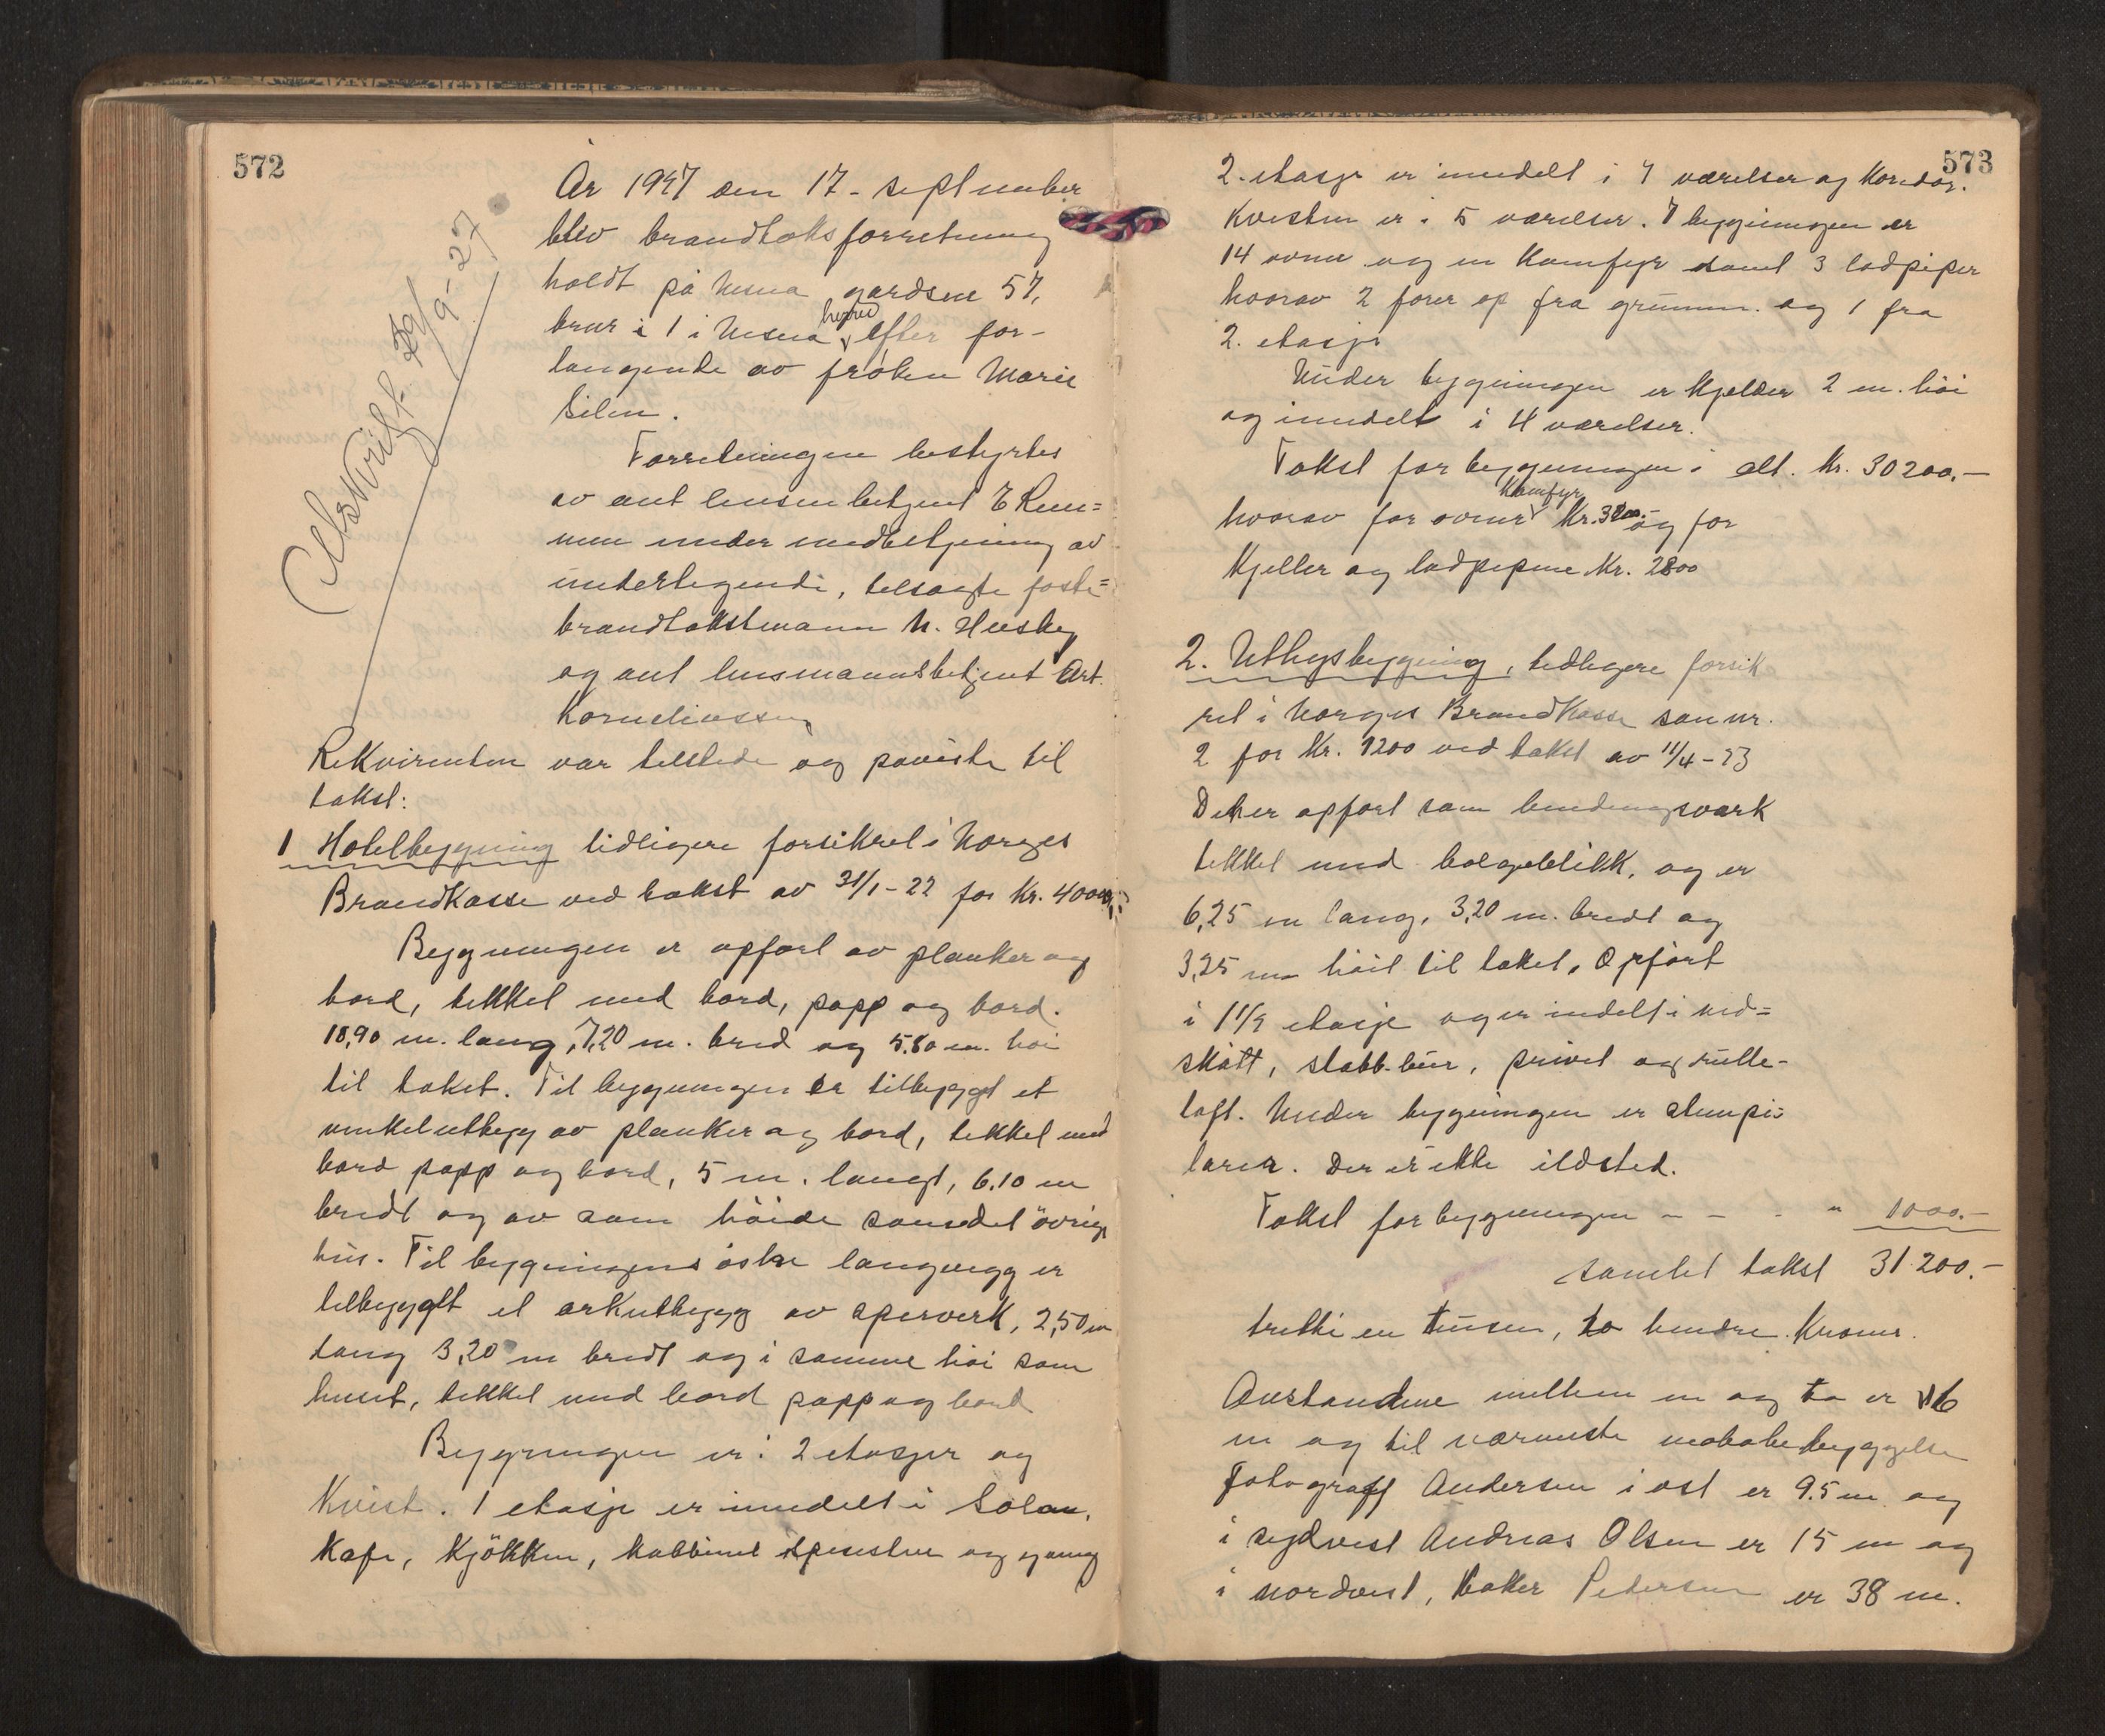 572
Avskrift 29/9-27
År 1927 den 17 - september
blev brandtaksforretning
holdt på Nesna gardsnr 57,
brnr i 1 i Nesna herred efter for-
langende av frøken Marie
Silen.
Forretningen bestyrtes
av ant lensm betjent E Rem=
men under medbetjening av
undertegnede, tilsagte faste=
brandtakstmann N. Husby
og ant lensmannsbetjent Art.
Korneliussen
Rekvirenten var tilstede og paviste til
takst:
1 Hotelbygning tidligere forsikret i Norges
Brandkasse ved takst av 31/1-22 for Kr. 40000,-
Bygningen er opført av planker og
bord, tekket med bord, papp og bord.
18,90 m. lang, 7,20 m. bred og 5.80 m. høi
til taket. Til bygningen er tilbygget et
vinkelutbygg av planker og bord, tekket med
bord papp og bord, 5 m. langt, 6.10 m
bredt og av sam høide somdet øvrige
hus. Til bygningens østre langvegg er
tilbyggt et arkutbygg av sperverk, 2,50 m
lang 3,20 m bredt og i samme høi som
huset, tekket med bord papp og bord
Bygningen er i 2 etasjer og
Kvist. 1 etasje er inndelt i Salon,
Kafe, Kjøkken, kabbinet spisestue og gang
573
2. etasje er inndelt i 7 værelser og Koridor.
Kvisten er i 5 værelser. I bygningen er
14 ovner og en Komfyr samt 3 lodpiper
hvorav 2 fører op fra grunnen og 1 fra
2. etasje
Under bygningen er kjelder 2 m. høi
og inndelt i 4 værelser.
Takst for bygningen i alt. Kr. 30200.-
hvorav for ovner Komfyr Kr. 3200.- og for
Kjeller og lodpipene Kr. 2800
2. Uthysbygning, tidligere forsik
ret i Norges Brandkasse som nr.
2 for Kr. 1200 ved takst av 11/4-23
Det er opført som bindingsverk
tekket med bølgeblikk, og er
6,25 m lang, 3,20 m. bredt og
3,25 m høit til taket, Opført
i 1 1/2 etasje og er indelt i ved=
skått, stabb-bur, privet og rulle-
loft. Under bygningen er stenpi-
larer. Der er ikke ildsted.
Takst for bygningen - - - " 1000.-
samlet takst 31200.-
tretti en tusen, to hundre Kroner.
Avstandene mellem en og to er 16
m og til nærmeste nabobebyggelse
Fotograf Andersen i øst er 9.5 m og
i sydvest Andreas Olsen er 15 m og
i nordvest, baker Pedersen er 38 m.